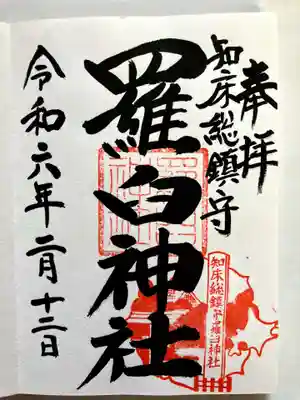 奉拝
知床総鎮守
羅臼神社
知床総鎮守羅臼神社
令和六年二月十二日